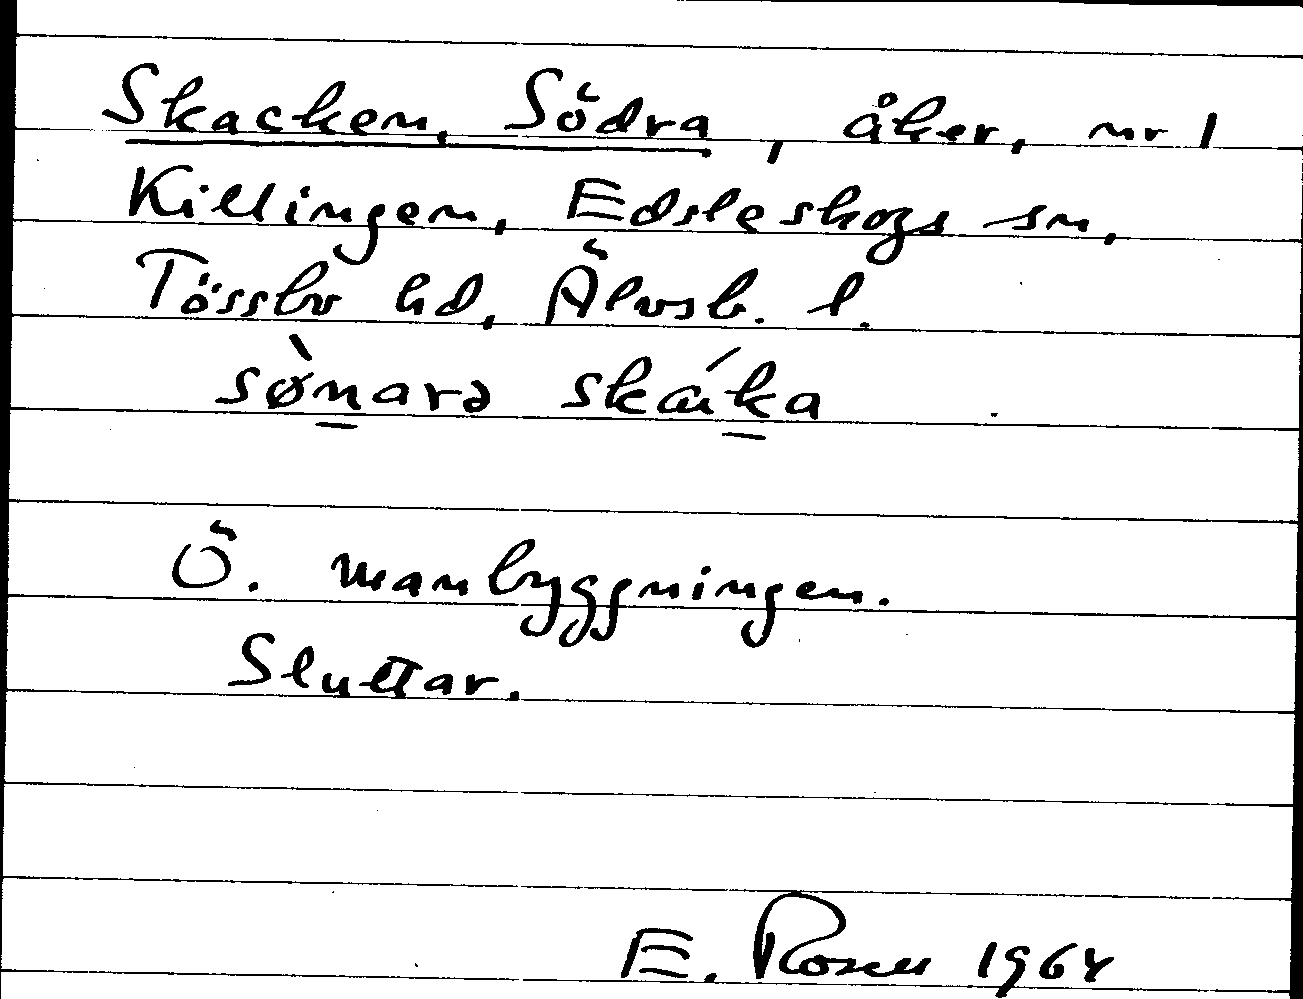 Skacken, Södra, åker, nr 1
Killingen, Edsleskogs sn,
Tössbo hd, Älvsb. l.
sø̀narə skáka
Ö. manbyggningen.
Sluttar.
E. Rosen 1964